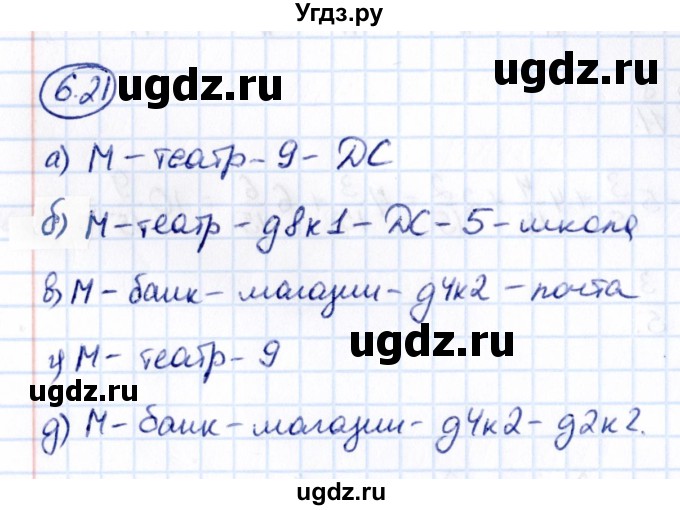 Угдз.ру
6.21 ugdz.ru ugdz.ru
а) М – театр – 9 – ДС
ugdz.ru
б) М – театр – д8к1 – ДС – 5 – школа
в) М – банк – магазин – д4к2 – почта
г) М – театр – 9 ugdz.ru
ugdz.ru
д) М – банк – магазин – д4к2 – д2к2.
ugdz.ru